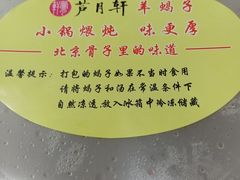 芦月轩 羊蝎子
小锅煨炖 味更厚
北京骨子里的味道
温馨提示：打包的蝎子如果不当时食用
请将蝎子和汤在常温条件下
自然冻透，放入冰箱中冷冻储藏